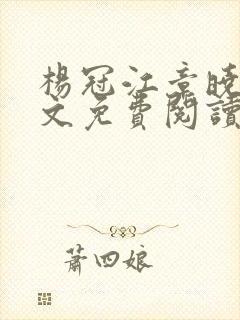 楊冠江意曉
文免費閱讀
蕭四娘